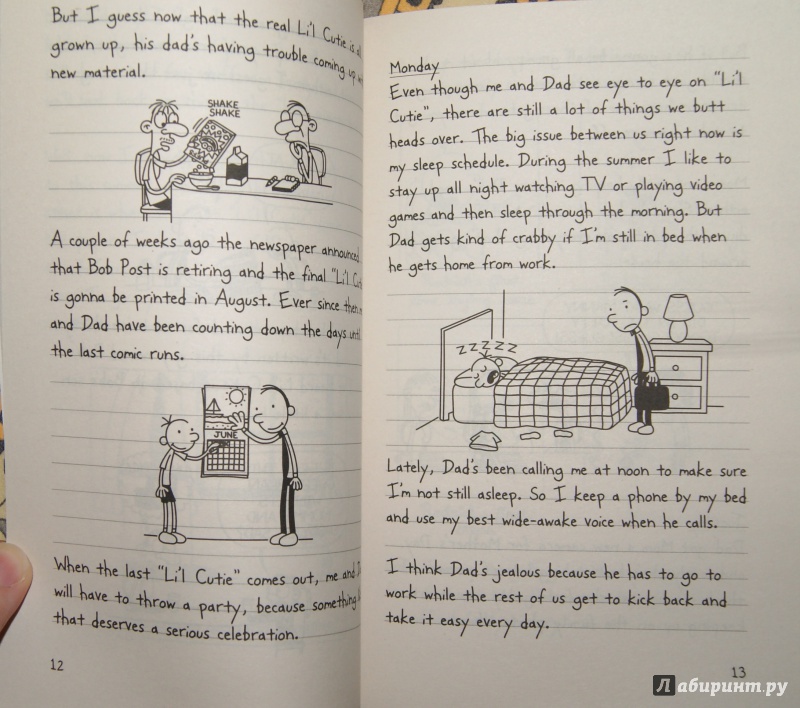 But I guess now that the real Li'l Cutie is
grown up, his dad's having trouble coming up
new material.
SHAKE
SHAKE
A couple of weeks ago the newspaper announced
that Bob Post is retiring and the final "Li'l
is gonna be printed in August. Ever since then
and Dad have been counting down the days
the last comic runs.
JUNE
When the last "Li'l Cutie" comes out, me and
will have to throw a party, because something
that deserves a serious celebration.
12
Monday
Even though me and Dad see eye to eye on "Li'l
Cutie", there are still a lot of things we butt
heads over. The big issue between us right now is
my sleep schedule. During the summer I like to
stay up all night watching TV or playing video
games and then sleep through the morning. But
Dad gets kind of crabby if I'm still in bed when
he gets home from work.
ZZZZZ
Lately, Dad's been calling me at noon to make sure
I'm not still asleep. So I keep a phone by my bed
and use my best wide-awake voice when he calls.
I think Dad's jealous because he has to go to
work while the rest of us get to kick back and
take it easy every day.
13
Лабиринт.ру